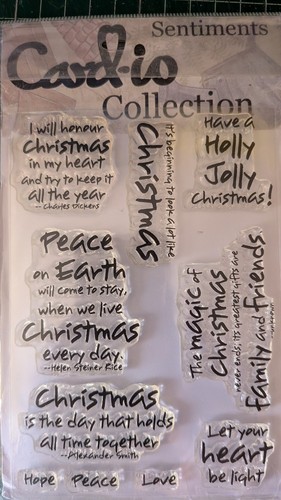 Sentiments
Card-io
Collection
I will honour
Christmas
in my heart
and try to keep it
all the year
-- Charles Dickens
it's beginning to look a lot like
Christmas
Have a
Holly
Jolly
Christmas!
Peace
on Earth
will come to stay,
when we live
Christmas
every day.
--Helen Steiner Rice
The magic of
Christmas
never ends, its greatest gifts are
family and friends.
--unknown
Christmas
is the day that holds
all time together
--Alexander Smith
Let your
heart
be light
Hope
Peace
Love